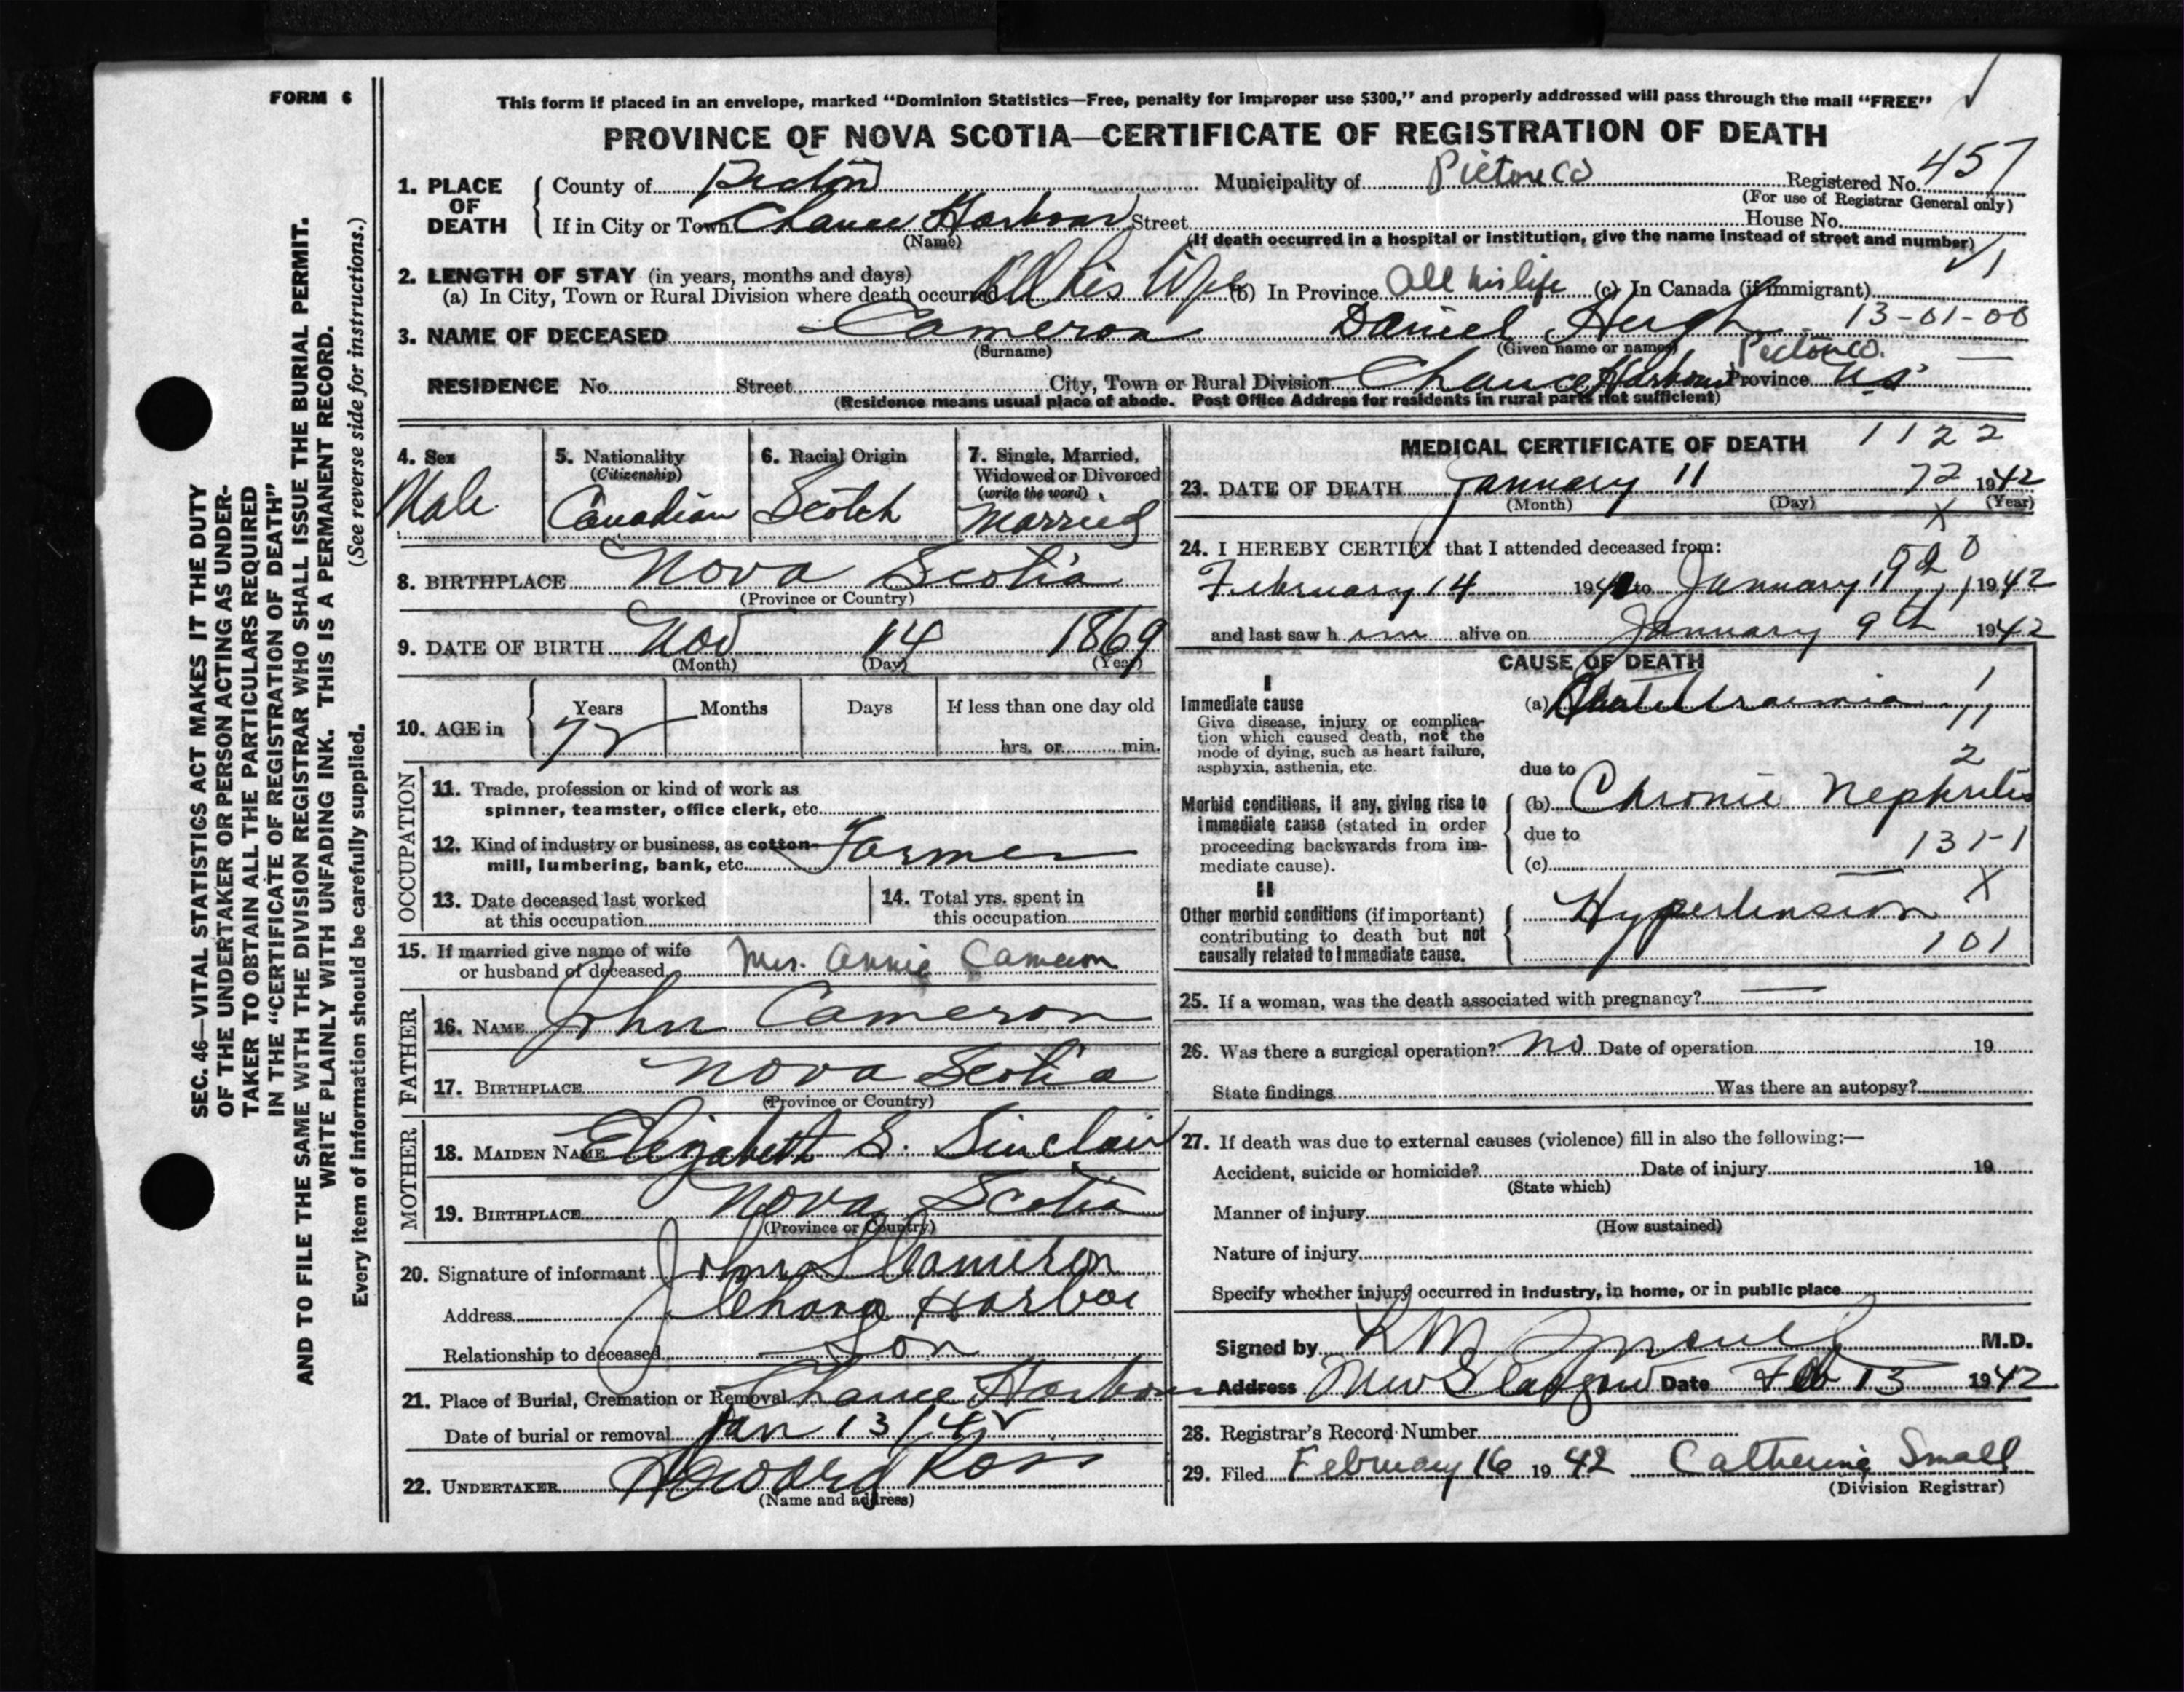 FORM 6
This form if placed in an envelope, marked “Dominion Statistics—Free, penalty for improper use $300,” and properly addressed will pass through the mail “FREE”
PROVINCE OF NOVA SCOTIA—CERTIFICATE OF REGISTRATION OF DEATH
1. PLACE OF DEATH
County of Pictou Municipality of Pictou Co Registered No. 457
(For use of Registrar General only)
If in City or Town Chance Harbour Street House No.
(Name) (If death occurred in a hospital or institution, give the name instead of street and number)
2. LENGTH OF STAY (in years, months and days)
(a) In City, Town or Rural Division where death occurred All his life (b) In Province All his life (c) In Canada (if immigrant)
3. NAME OF DECEASED Cameron Daniel Hugh 13-01-00
(Surname) (Given name or names)
RESIDENCE No. Street City, Town or Rural Division Chance Harbour Province Pictou Co. N.S.
(Residence means usual place of abode. Post Office Address for residents in rural parts not sufficient)
4. Sex
Male
5. Nationality
(Citizenship)
Canadian
6. Racial Origin
Scotch
7. Single, Married,
Widowed or Divorced
(write the word)
Married
8. BIRTHPLACE Nova Scotia
(Province or Country)
9. DATE OF BIRTH Nov 14 1869
(Month) (Day) (Year)
10. AGE in Years Months Days If less than one day old
72 hrs. or min.
OCCUPATION
11. Trade, profession or kind of work as
spinner, teamster, office clerk, etc.
12. Kind of industry or business, as cotton-
mill, lumbering, bank, etc. Farmer
13. Date deceased last worked
at this occupation
14. Total yrs. spent in
this occupation
15. If married give name of wife
or husband of deceased Mrs. Annie Cameron
FATHER
16. NAME John Cameron
17. BIRTHPLACE Nova Scotia
(Province or Country)
MOTHER
18. MAIDEN NAME Elizabeth S. Sinclair
19. BIRTHPLACE Nova Scotia
(Province or Country)
20. Signature of informant John S Cameron
Address Chance Harbor
Relationship to deceased Son
21. Place of Burial, Cremation or Removal Chance Harbour
Date of burial or removal Jan 13/42
22. UNDERTAKER Howard Ross
(Name and address)
MEDICAL CERTIFICATE OF DEATH 1122
23. DATE OF DEATH January 11 72 1942
(Month) (Day) (Year)
X
24. I HEREBY CERTIFY that I attended deceased from:
February 14 194 to January 11 1942
and last saw h im alive on January 9th 1942
CAUSE OF DEATH
I
Immediate cause
Give disease, injury or complica-
tion which caused death, not the
mode of dying, such as heart failure,
asphyxia, asthenia, etc.
(a) Uraemia
1
11
2
due to
Morbid conditions, if any, giving rise to
immediate cause (stated in order
proceeding backwards from im-
mediate cause).
(b) Chronic Nephritis
due to
131-1
(c)
II
Other morbid conditions (if important)
contributing to death but not
causally related to immediate cause.
Hypertension X
101
25. If a woman, was the death associated with pregnancy?
26. Was there a surgical operation? No Date of operation 19
State findings Was there an autopsy?
27. If death was due to external causes (violence) fill in also the following:—
Accident, suicide or homicide? Date of injury 19
(State which)
Manner of injury
(How sustained)
Nature of injury
Specify whether injury occurred in industry, in home, or in public place
Signed by M.D.
Address New Glasgow Date Feb 13 1942
28. Registrar's Record Number
29. Filed February 16 1942 Catherine Small
(Division Registrar)
SEC. 46—VITAL STATISTICS ACT MAKES IT THE DUTY
OF THE UNDERTAKER OR PERSON ACTING AS UNDER-
TAKER TO OBTAIN ALL THE PARTICULARS REQUIRED
IN THE “CERTIFICATE OF REGISTRATION OF DEATH”
AND TO FILE THE SAME WITH THE DIVISION REGISTRAR WHO SHALL ISSUE THE BURIAL PERMIT.
WRITE PLAINLY WITH UNFADING INK. THIS IS A PERMANENT RECORD.
Every item of information should be carefully supplied. (See reverse side for instructions.)